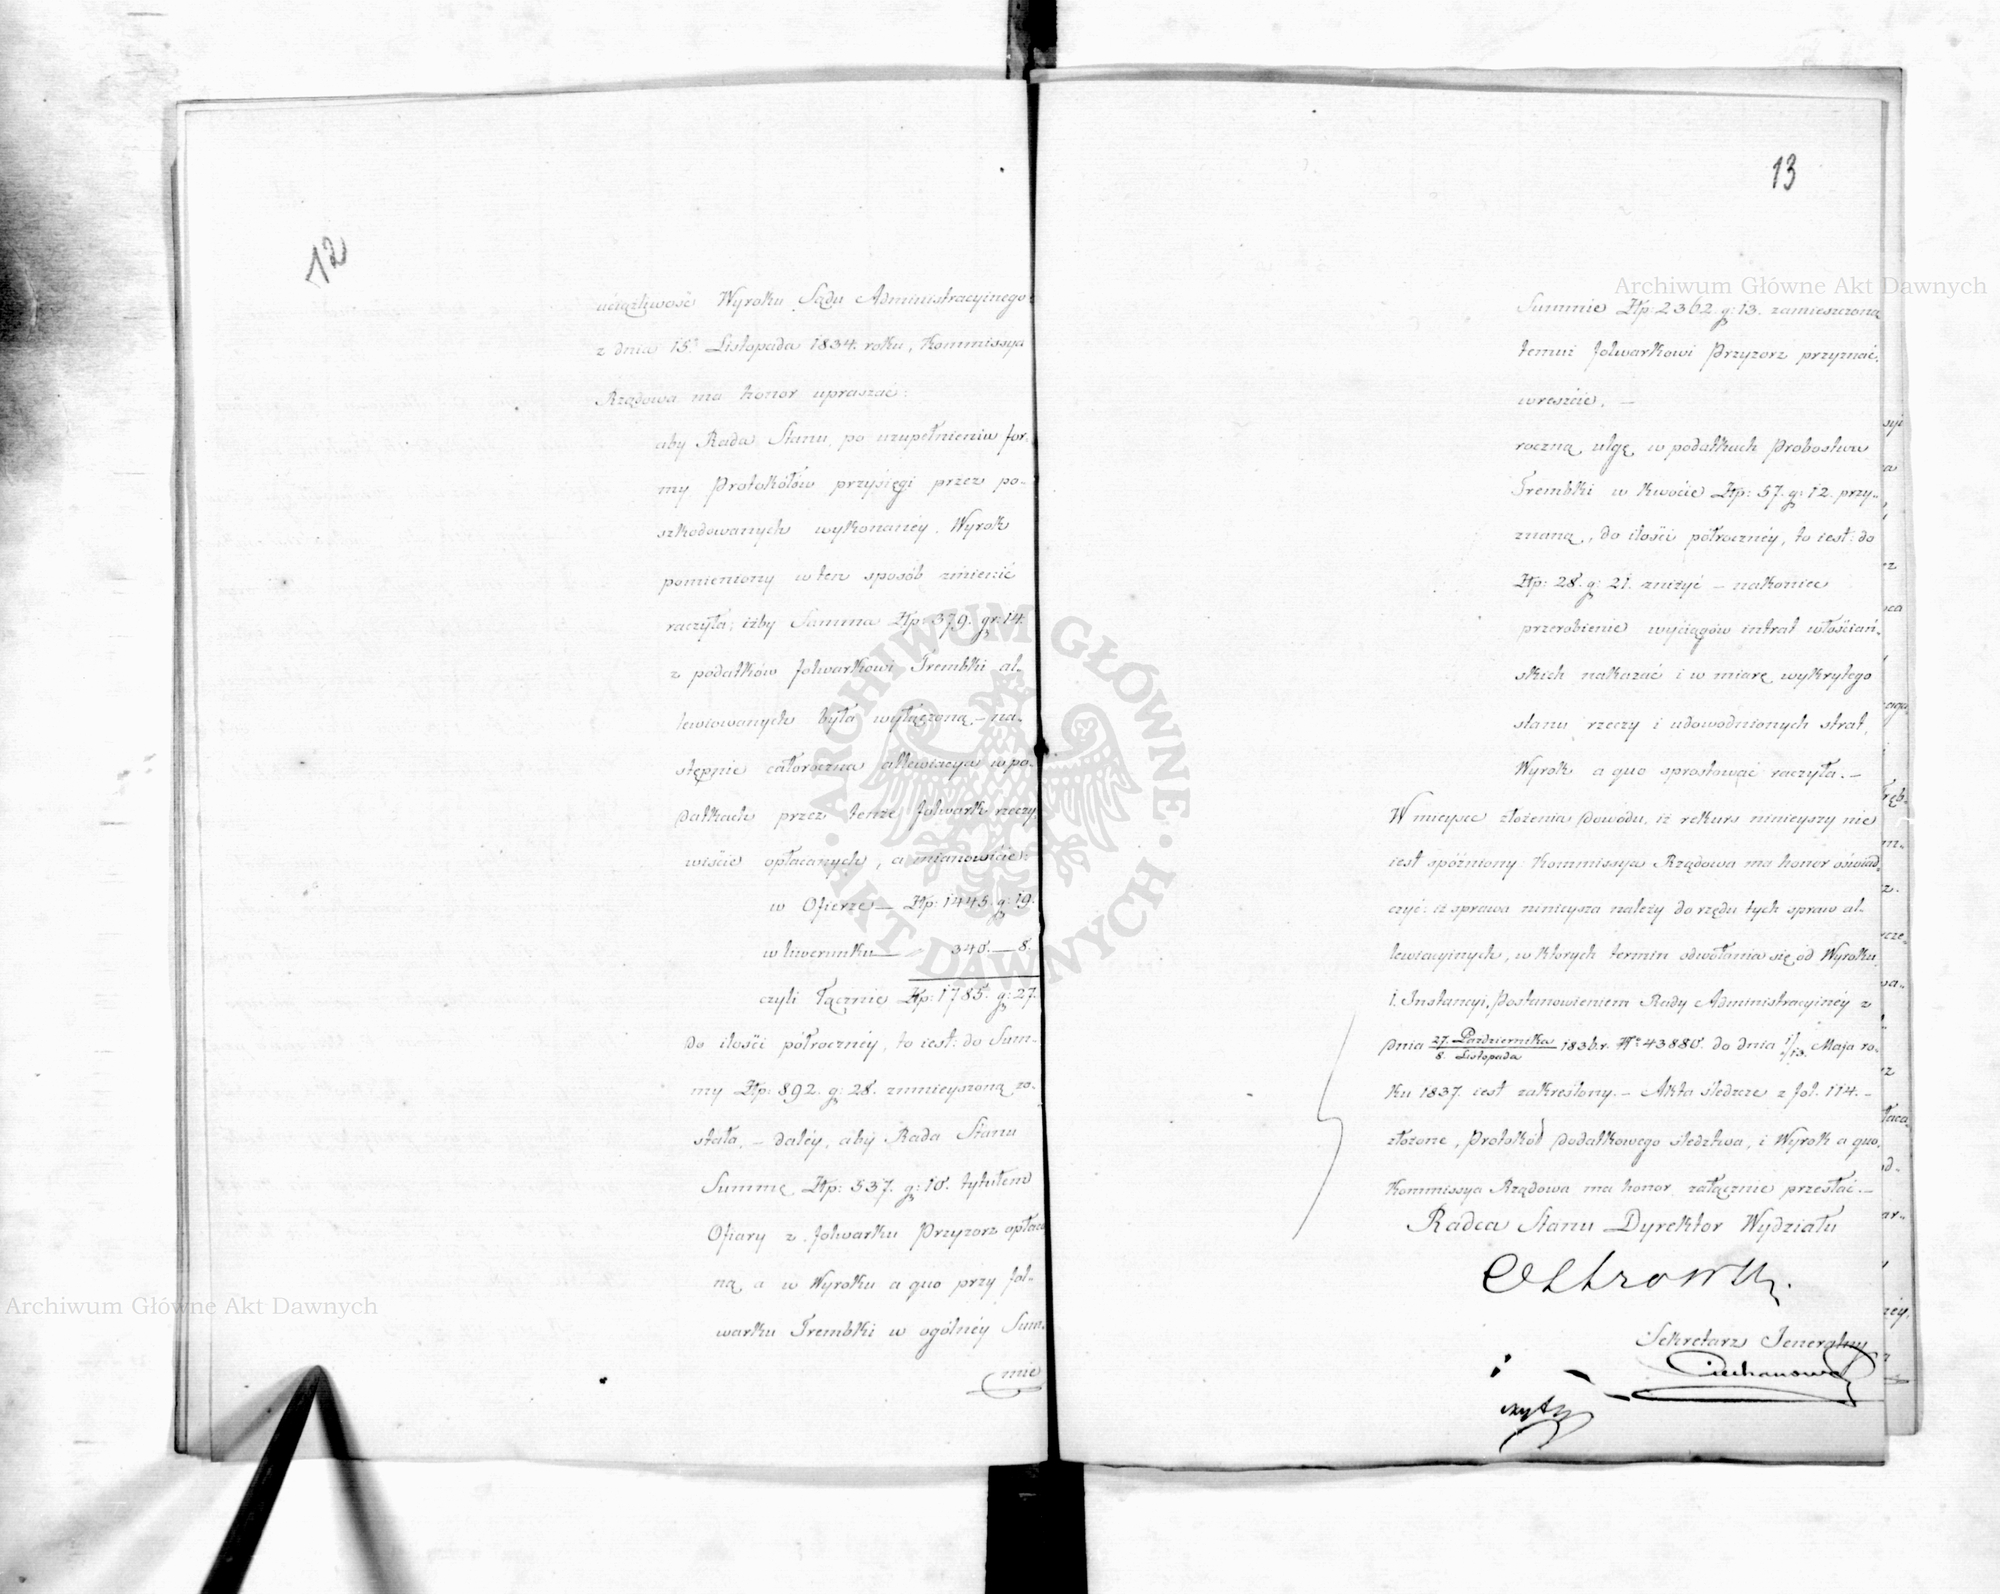 12
uciążliwość Wyroku Sądu Administracyinego
z dnia 15. Listopada 1834. roku, Kommissya
Rządowa ma honor upraszać:
aby Rada Stanu, po uzupełnieniu for-
my Protokółów przysięgi przez po-
szkodowanych wykonanéy. Wyrok
pomieniony w ten sposób zmienić
raczyła; iżby Summa Złp: 379. gr: 14.
z podatków folwarkowi Trembki al-
lewiowanych była wyłączoną, – na-
stępnie całoroczna allewiacya w po-
datkach przez tenże folwark rzeczy-
wiście opłacanych, a mianowicie:
w Ofierze — Złp: 1445. g: 19.
w liwerunku — 340. — 8.
czyli łącznie Złp: 1785. g: 27.
do ilości półrocznéy, to iest: do Sum-
my Złp: 892. g: 28. zmnieyszoną zo-
stała, – daléy, aby Rada Stanu
Summę Złp: 537. g: 10. tytułem
Ofiary z folwarku Przyzorz opłaco
ną a w Wyroku a quo przy fol-
warku Trembki w ogólnéy Sum-
mie
13
Summie Złp: 2362. g: 13. zamieszczoną
temuż folwarkowi Przyzorz przyznać,
wreszcie, —
roczną ulgę w podatkach Probostwu
Trembki w kwocie Złp: 57. g: 12. przy-
znaną, do ilości półrocznéy, to iest: do
Złp: 28. g: 21. zniżyć – nakoniec
przerobienie wyciągów intrat włościań-
skich nakazać i w miarę wykrytego
stanu rzeczy i udowodnionych strat,
Wyrok a quo sprostować raczyła. –
W mieysce złożenia dowodu, iż rekurs ninieyszy nie
iest spóźniony: Kommissya Rządowa ma honor oświad-
czyć: iż sprawa ninieysza należy do rzędu tych spraw al-
lewiacyinych, w których termin odwołania się od Wyroku
I. Instancyi, Postanowieniem Rady Administracyinéy z
dnia 27. Października / 8. Listopada 1836. r. No 43880. do dnia 1/13. Maja ro-
ku 1837. iest zakreślony. – Akta śledcze z fol. 114. –
złożone, Protokół dodatkowego śledztwa, i Wyrok a quo,
Kommissya Rządowa ma honor załącznie przesłać. –
Radca Stanu Dyrektor Wydziału
Sekretarz Jeneralny
Archiwum Główne Akt Dawnych
Archiwum Główne Akt Dawnych
ARCHIWUM GŁÓWNE
AKT DAWNYCH